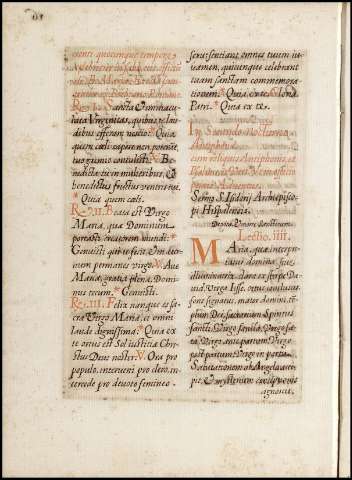 Resp. I. Sancta & immacu-
lata Virginitas, quibus te lau-
dibus efferam nescio: Quia
quem cæli capere non poterat,
tuo gremio contulisti. V. Be-
nedicta tu in mulieribus, &
benedictus fructus ventris tui.
Quia quem cæli.
Resp. II. Beata es Virgo
Maria, quæ Dominum
portasti creatorem mundi:
Genuisti qui te fecit, & in æter-
num permanes virgo. V. Ave
Maria, gratia plena, Domi-
nus tecum. Genuisti.
Resp. III. Felix namque es sa-
cra Virgo Maria, & omni
laude dignissima: Quia ex
te ortus est Sol iustitiæ Chri-
stus Deus noster. V. Ora pro
populo, interveni pro clero, in-
tercede pro devoto femineo
sexu: sentiant omnes tuum iu-
vamen, quicunque celebrant
tuam sanctam commemora-
tionem. Quia ex te. Gloria
Patri. Quia ex te.
In Secundo Nocturno
Antiphona
Sermo S. Isidori Archiepisco-
pi Hispalensis.
Lectio. IIII.
Maria, quæ interpre-
tatur domina, sive
illuminatrix, clara ex stirpe Da-
vid, Virga Iesse, ortus conclusus,
fons signatus, mater domini, tem-
plum Dei, sacrarium Spiritus
sancti, Virgo sancta, Virgo fœ-
ta, Virgo ante partum, Virgo
post partum, Virgo in partu.
Salutationem ab Angelo acce-
pit, & mysterium conceptionis
agnovit.